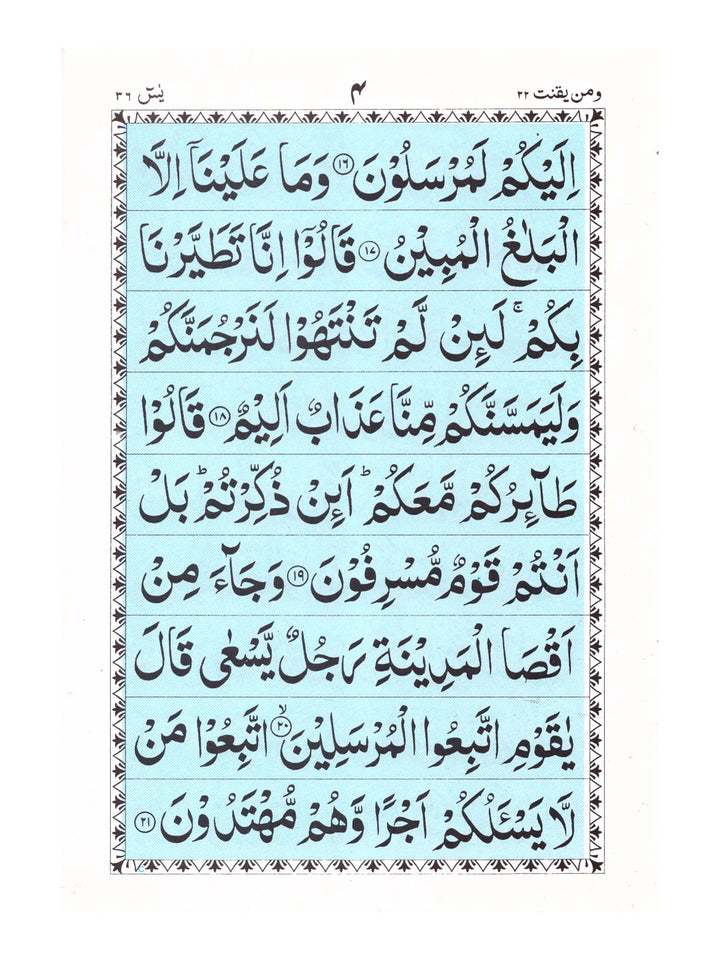 ومن یقنت ۲۲ ۴ یٰسٓ ۳۶
اِلَیْكُمْ لَمُرْسَلُوْنَ ۝۱۶ وَمَا عَلَیْنَاۤ اِلَّا
الْبَلٰغُ الْمُبِیْنُ ۝۱۷ قَالُوْۤا اِنَّا تَطَیَّرْنَا
بِكُمْ ۚ لَىِٕنْ لَّمْ تَنْتَهُوْا لَنَرْجُمَنَّكُمْ
وَلَیَمَسَّنَّكُمْ مِّنَّا عَذَابٌ اَلِیْمٌ ۝۱۸ قَالُوْا
طَآىِٕرُكُمْ مَّعَكُمْ ؕ اَىِٕنْ ذُكِّرْتُمْ ؕ بَلْ
اَنْتُمْ قَوْمٌ مُّسْرِفُوْنَ ۝۱۹ وَجَآءَ مِنْ
اَقْصَا الْمَدِیْنَةِ رَجُلٌ یَّسْعٰی قَالَ
یٰقَوْمِ اتَّبِعُوا الْمُرْسَلِیْنَ ۝۲۰ۙ اتَّبِعُوْا مَنْ
لَّا یَسْـَٔلُكُمْ اَجْرًا وَّهُمْ مُّهْتَدُوْنَ ۝۲۱